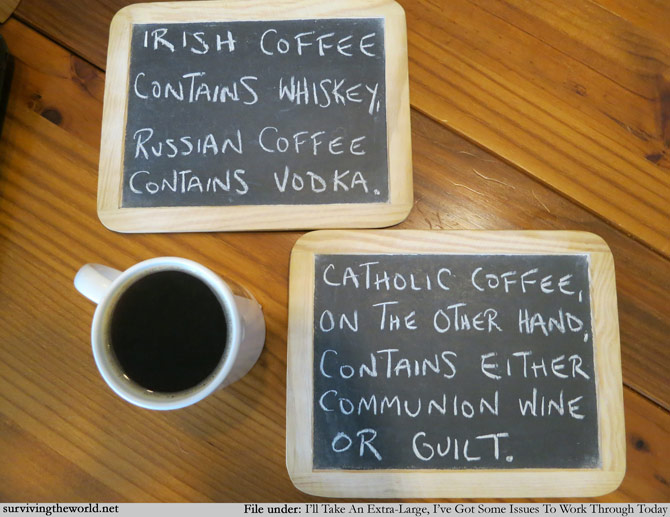 IRISH COFFEE
CONTAINS WHISKEY,
RUSSIAN COFFEE
CONTAINS VODKA.
CATHOLIC COFFEE,
ON THE OTHER HAND,
CONTAINS EITHER
COMMUNION WINE
OR GUILT.
survivingtheworld.net File under: I'll Take An Extra-Large, I've Got Some Issues To Work Through Today